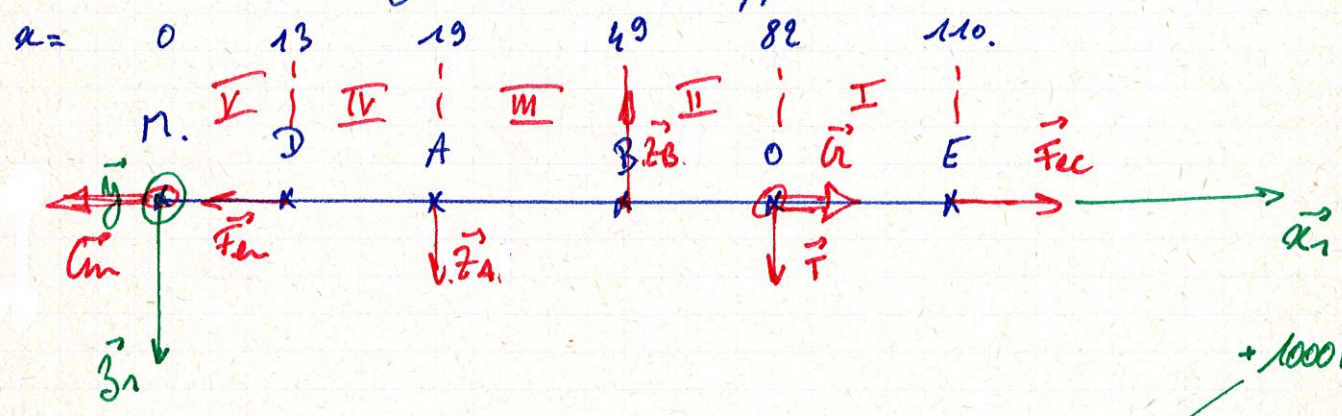 x= 0 13 19 49 82 110.
V IV III II I
M. D A B ZB O Cr E Fec
y
Cm Fer ZA. T x1
z1
+ 1000